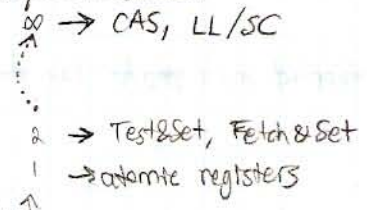 ∞ → CAS, LL/SC
2 → Test&Set, Fetch&Set
1 → atomic registers